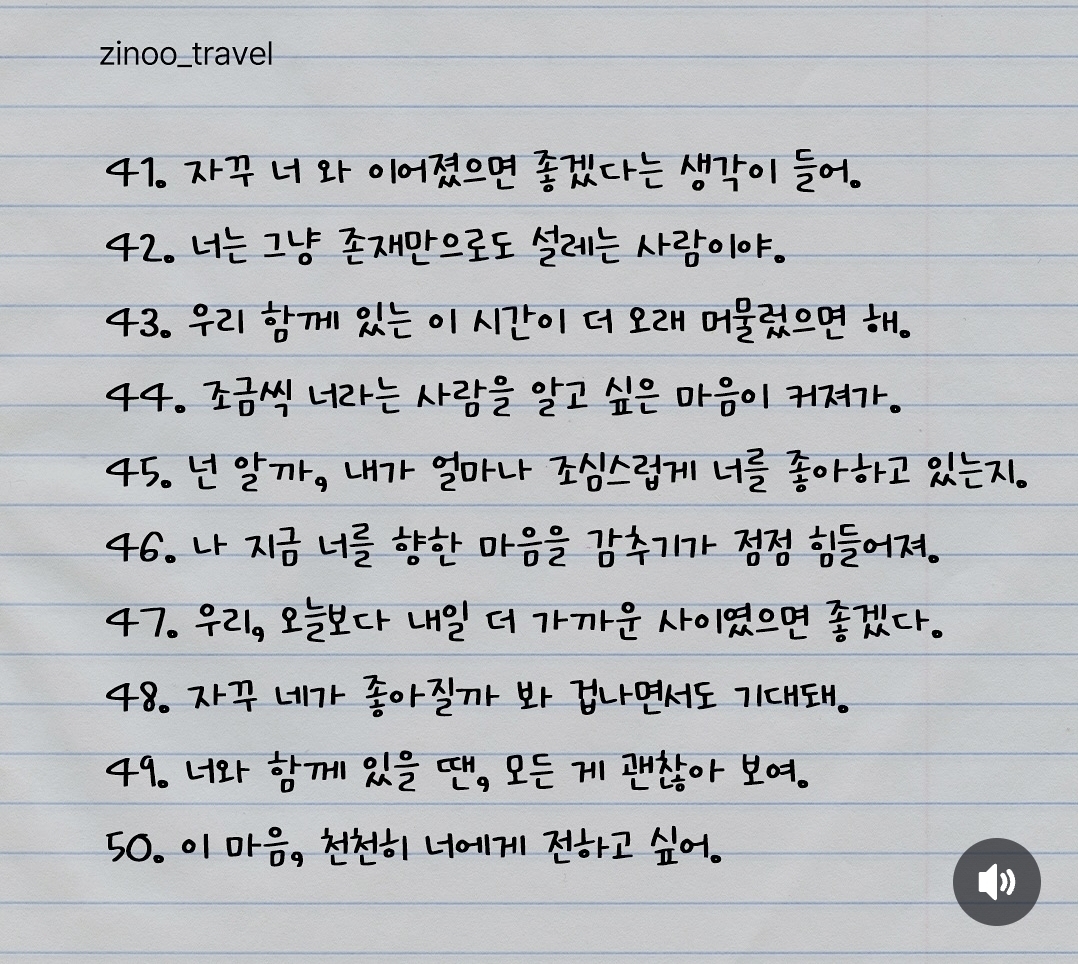 zinoo_travel
41. 자꾸 너 와 이어졌으면 좋겠다는 생각이 들어.
42. 너는 그냥 존재만으로도 설레는 사람이야.
43. 우리 함께 있는 이 시간이 더 오래 머물렀으면 해.
44. 조금씩 너라는 사람을 알고 싶은 마음이 커져가.
45. 넌 알까, 내가 얼마나 조심스럽게 너를 좋아하고 있는지.
46. 나 지금 너를 향한 마음을 감추기가 점점 힘들어져.
47. 우리, 오늘보다 내일 더 가까운 사이였으면 좋겠다.
48. 자꾸 네가 좋아질까 봐 겁나면서도 기대돼.
49. 너와 함께 있을 땐, 모든 게 괜찮아 보여.
50. 이 마음, 천천히 너에게 전하고 싶어.